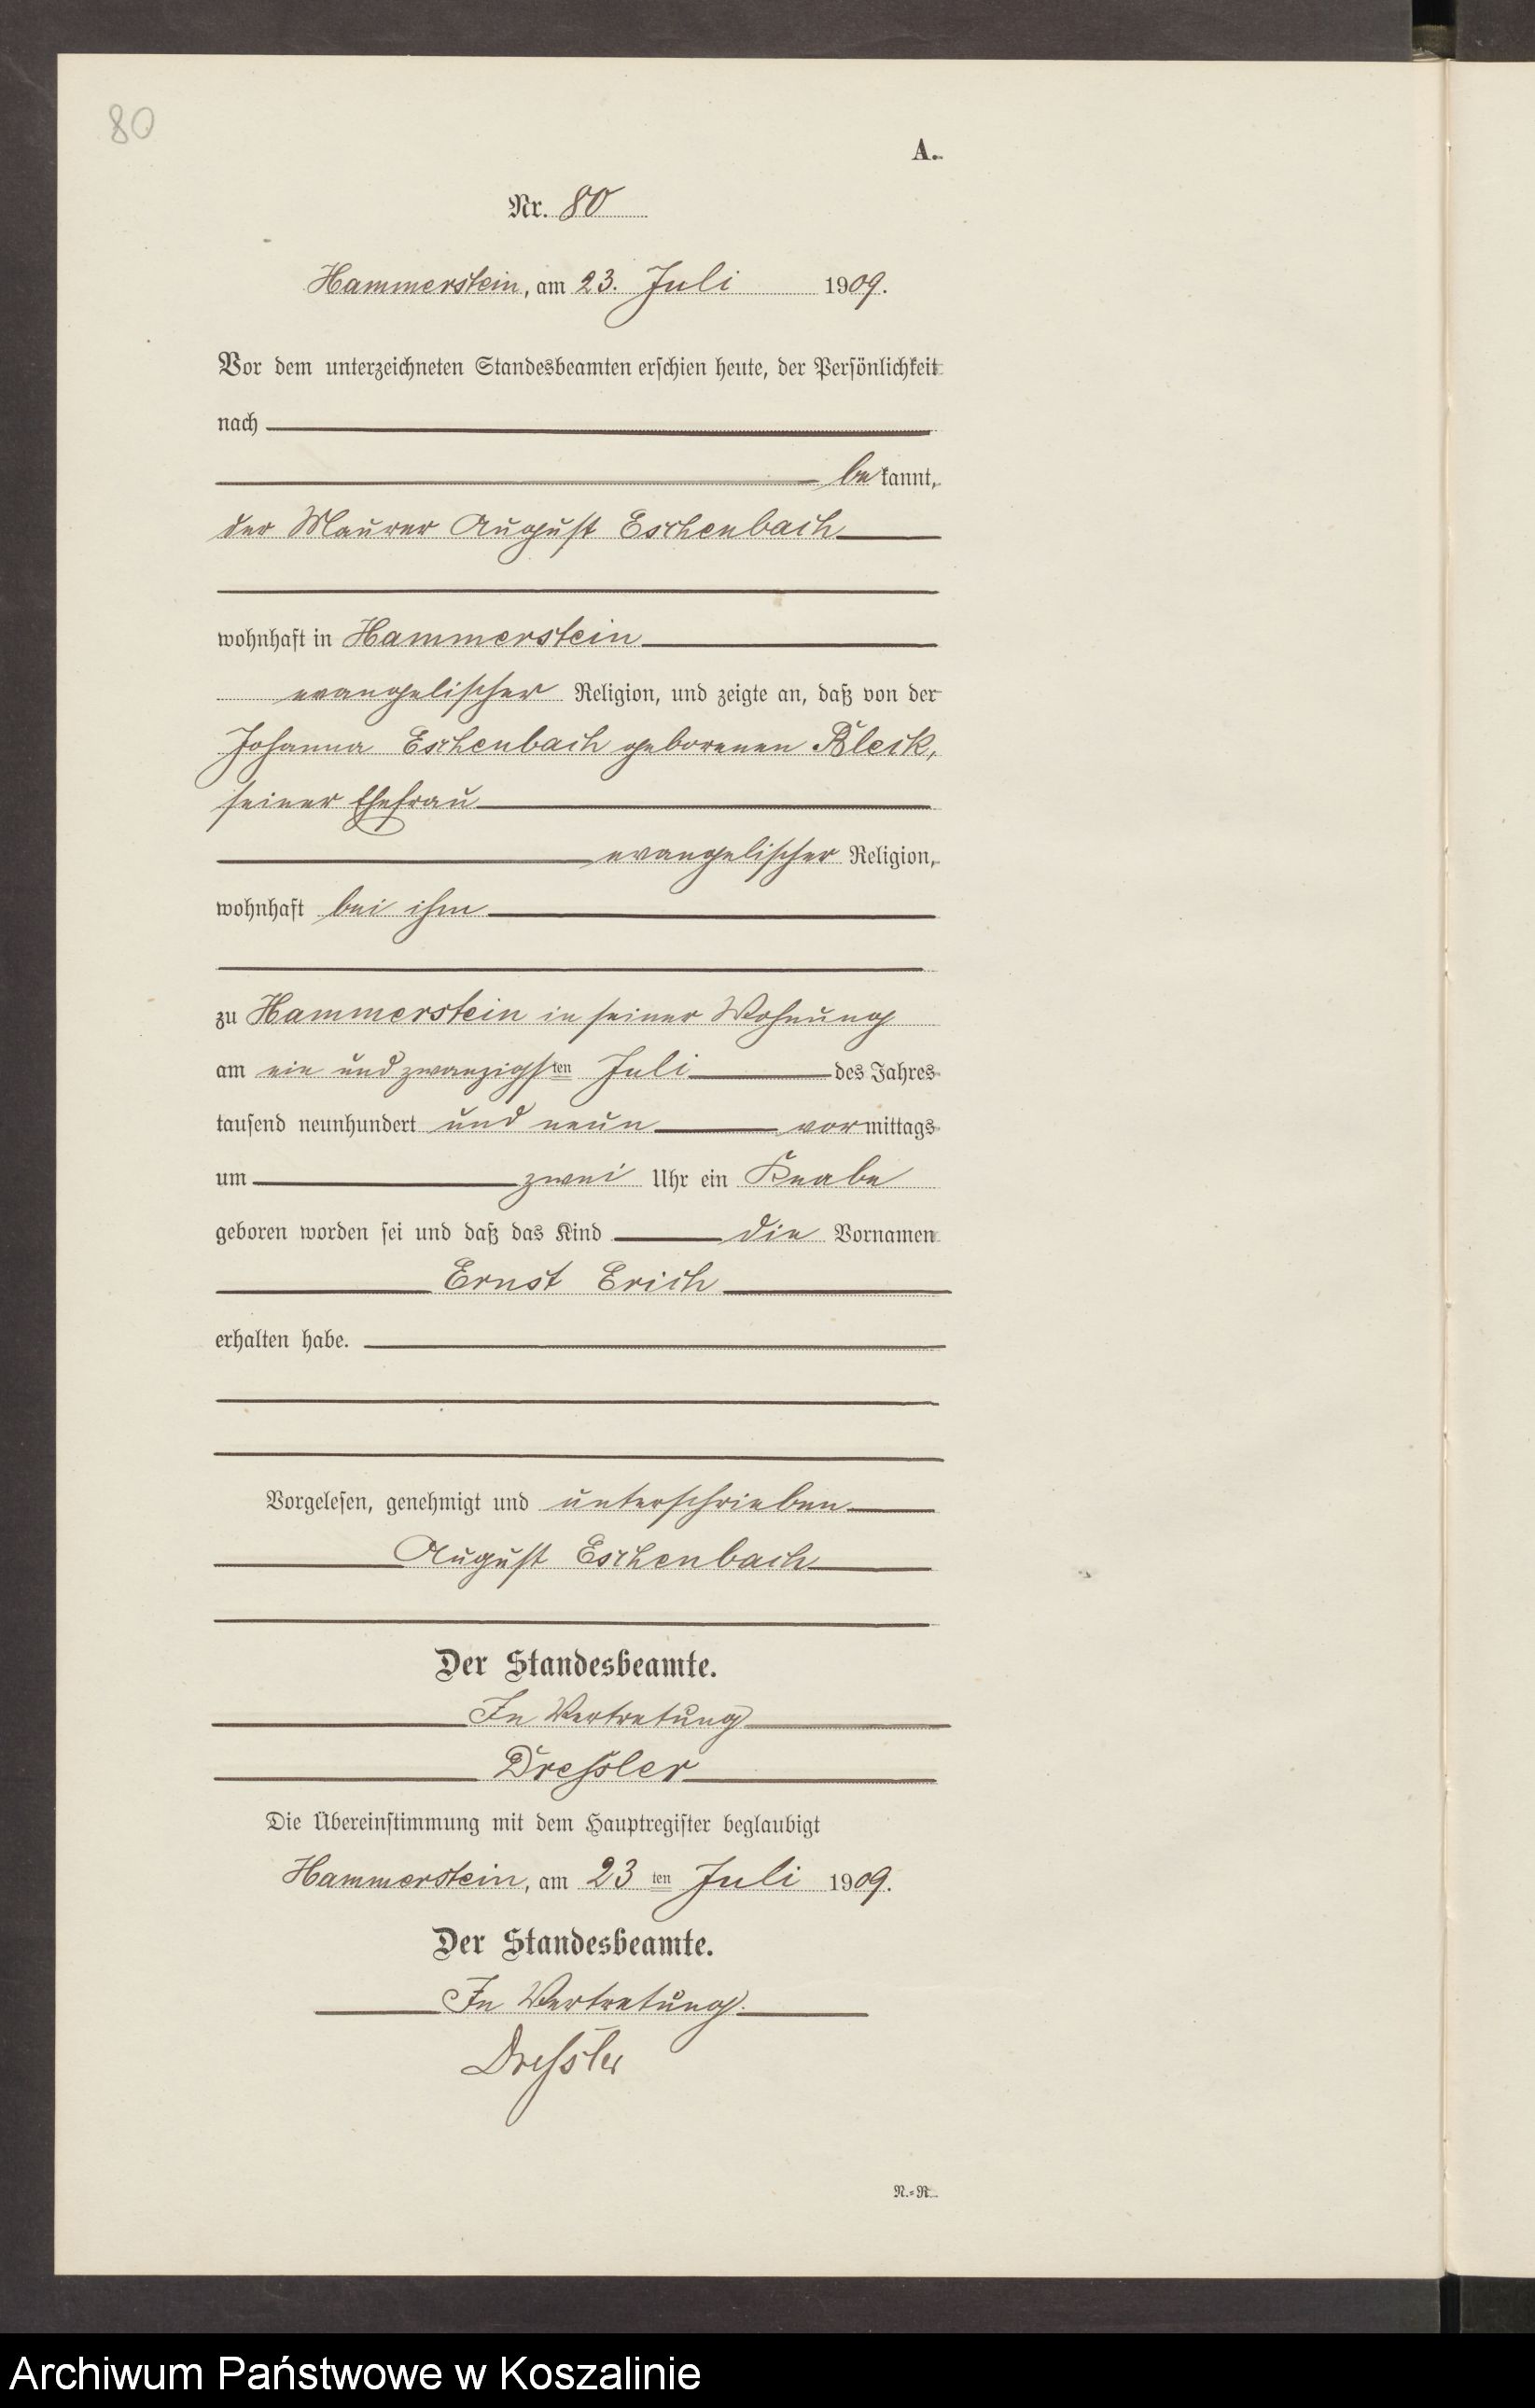 80
A.
Nr. 80
Hammerstein, am 23. Juli 1909.
Vor dem unterzeichneten Standesbeamten erschien heute, der Persönlichkeit
nach
bekannt,
der Maurer August Eschenbach
wohnhaft in Hammerstein
evangelischer Religion, und zeigte an, daß von der
Johanna Eschenbach geborenen Bleck,
seiner Ehefrau
evangelischer Religion,
wohnhaft bei ihm
zu Hammerstein in seiner Wohnung
am ein und zwanzigsten Juli des Jahres
tausend neunhundert und neun vormittags
um zwei Uhr ein Knabe
geboren worden sei und daß das Kind die Vornamen
Ernst Erich
erhalten habe.
Vorgelesen, genehmigt und unterschrieben
August Eschenbach
Der Standesbeamte.
In Vertretung
Dressler
Die Übereinstimmung mit dem Hauptregister beglaubigt
Hammerstein, am 23 ten Juli 1909.
Der Standesbeamte.
In Vertretung.
Dressler
N.=R.
Archiwum Państwowe w Koszalinie